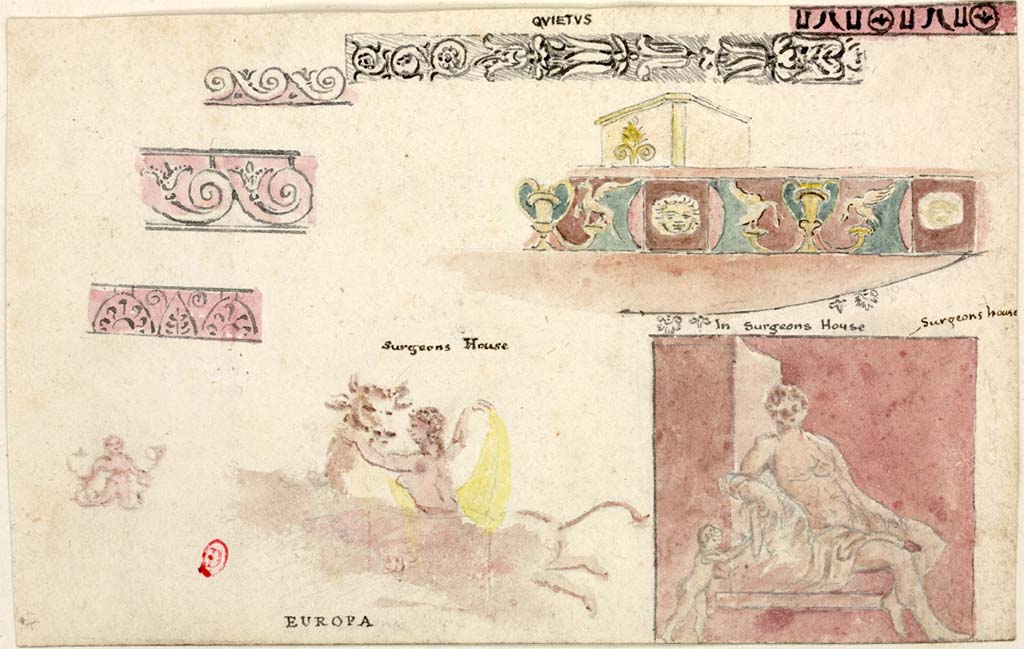 QVIETVS
In Surgeons House
Surgeons house
Surgeons House
EUROPA